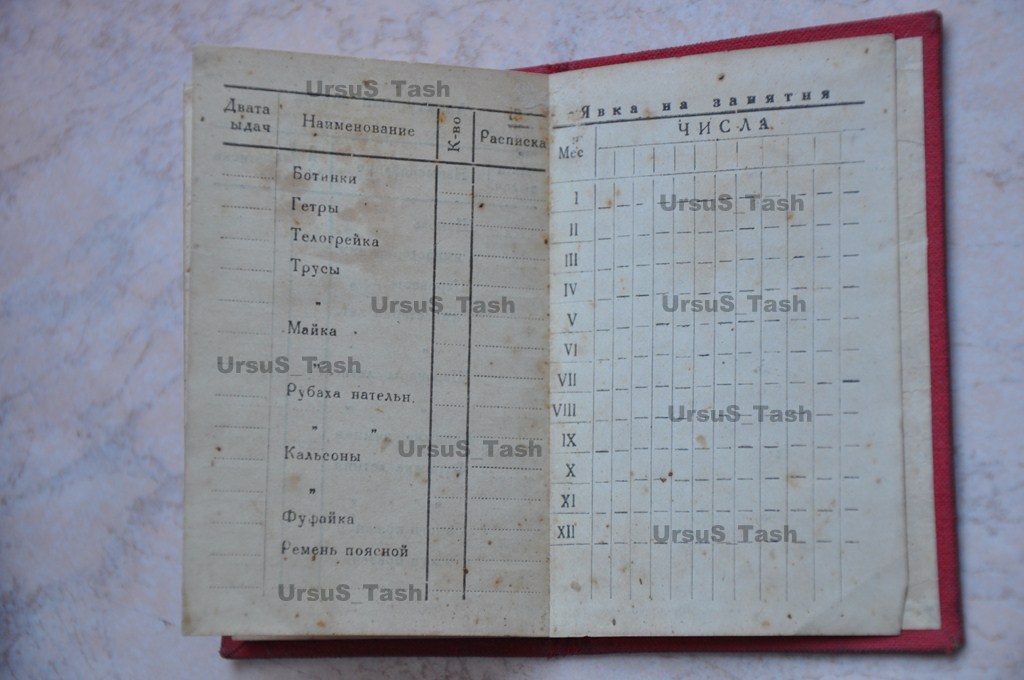 UrsuS_Tash
Двата
ыдач
Наименование
К-во
Расписка
Ботинки
Гетры
Телогрейка
Трусы
"
UrsuS_Tash
Майка
"
UrsuS_Tash
Рубаха нательн.
" "
UrsuS_Tash
Кальсоны
"
Фуфайка
Ремень поясной
UrsuS_Tash
Явка на занятия
ЧИСЛА
Мес
I
UrsuS_Tash
II
III
IV
UrsuS_Tash
V
VI
VII
VIII
UrsuS_Tash
IX
X
XI
XII
UrsuS_Tash